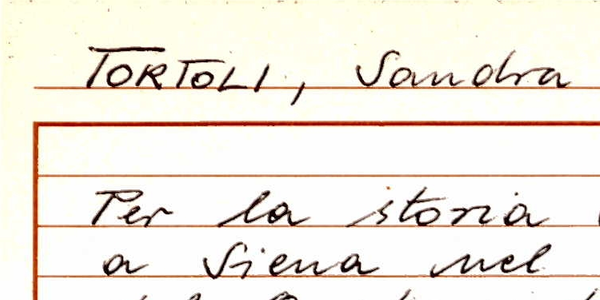 TORTOLI, Sandra
Per la storia
a Siena nel